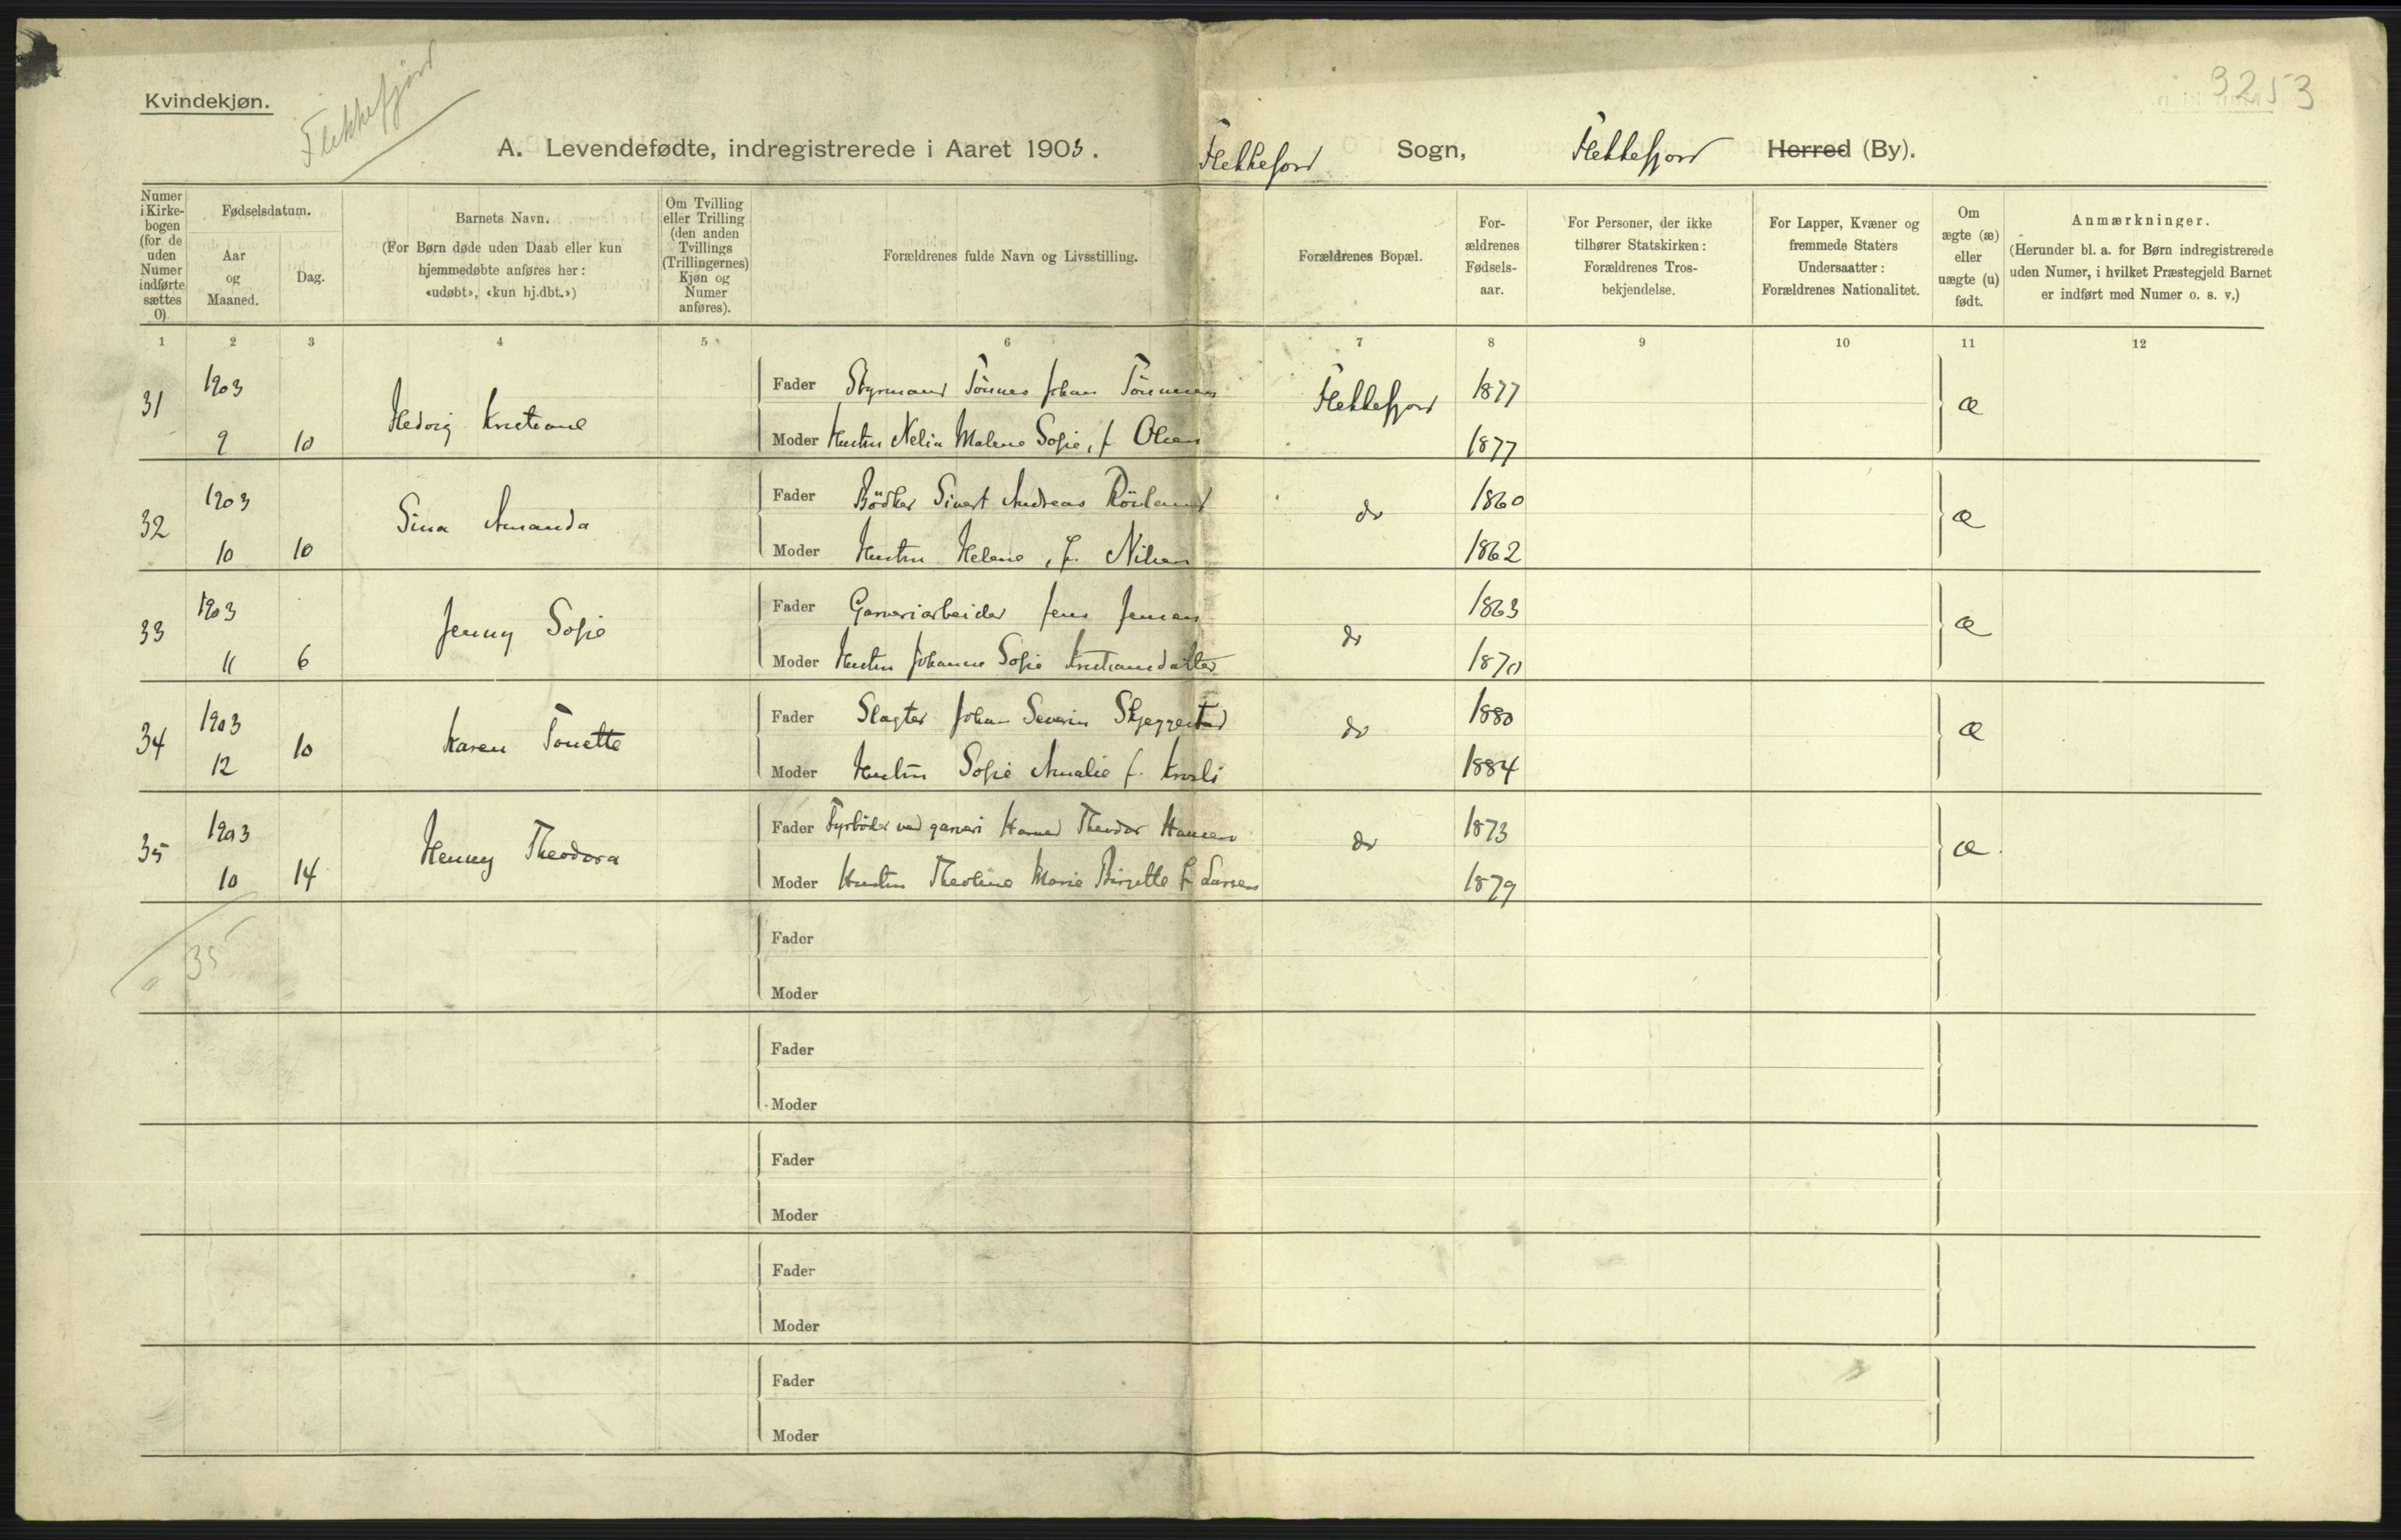 Kvindekjøn.
Flekkefjord
3253
A. Levendefødte, indregistrerede i Aaret 1903.
Flekkefjord Sogn, Flekkefjord Herred (By).
Numer i Kirke-bogen (for de uden Numer indførte sættes 0).
Fødselsdatum.
Aar og Maaned.
Dag.
Barnets Navn.
(For Børn døde uden Daab eller kun
hjemmedøbte anføres her:
«udøbt», «kun hj.dbt.»)
Om Tvilling
eller Trilling
(den anden
Tvillings
(Trillingernes)
Kjøn og
Numer
anføres).
Forældrenes fulde Navn og Livsstilling.
Forældrenes Bopæl.
For-
ældrenes
Fødsels-
aar.
For Personer, der ikke
tilhører Statskirken:
Forældrenes Tros-
bekjendelse.
For Lapper, Kvæner og
fremmede Staters
Undersaatter:
Forældrenes Nationalitet.
Om
ægte (æ)
eller
uægte (u)
født.
Anmærkninger.
(Herunder bl. a. for Børn indregistrerede
uden Numer, i hvilket Præstegjeld Barnet
er indført med Numer o. s. v.)
1 2 3 4 5 6 7 8 9 10 11 12
31 1903 9 10 Hedvig Kristiane
Fader Styrmand Tönnes Johan Tönnessen Flekkefjord 1877 æ
Moder Hustru Nelia Malene Sofie, f. Olsen 1877
32 1903 10 10 Sina Amanda
Fader Bödker Sivert Andreas do 1860 æ
Moder Hustru Helene, f. Nilsen 1862
33 1903 11 6 Jenny Sofie
Fader Garveriarbeider Jens Jensen do 1863 æ
Moder Hustru Johanne Sofie Kristiansdatter 1870
34 1903 12 10 Karen Tonette
Fader Slagter Johan Severin Skjeggestad do 1880 æ
Moder Hustru Sofie Amalie f. 1884
35 1903 10 14 Henny Theodora
Fader Fyrböder ved garveri Theodor Hansen do 1873 æ
Moder Hustru Theoline Marie Birgitte f. Larsen 1879
35
Fader
Moder
Fader
Moder
Fader
Moder
Fader
Moder
Fader
Moder